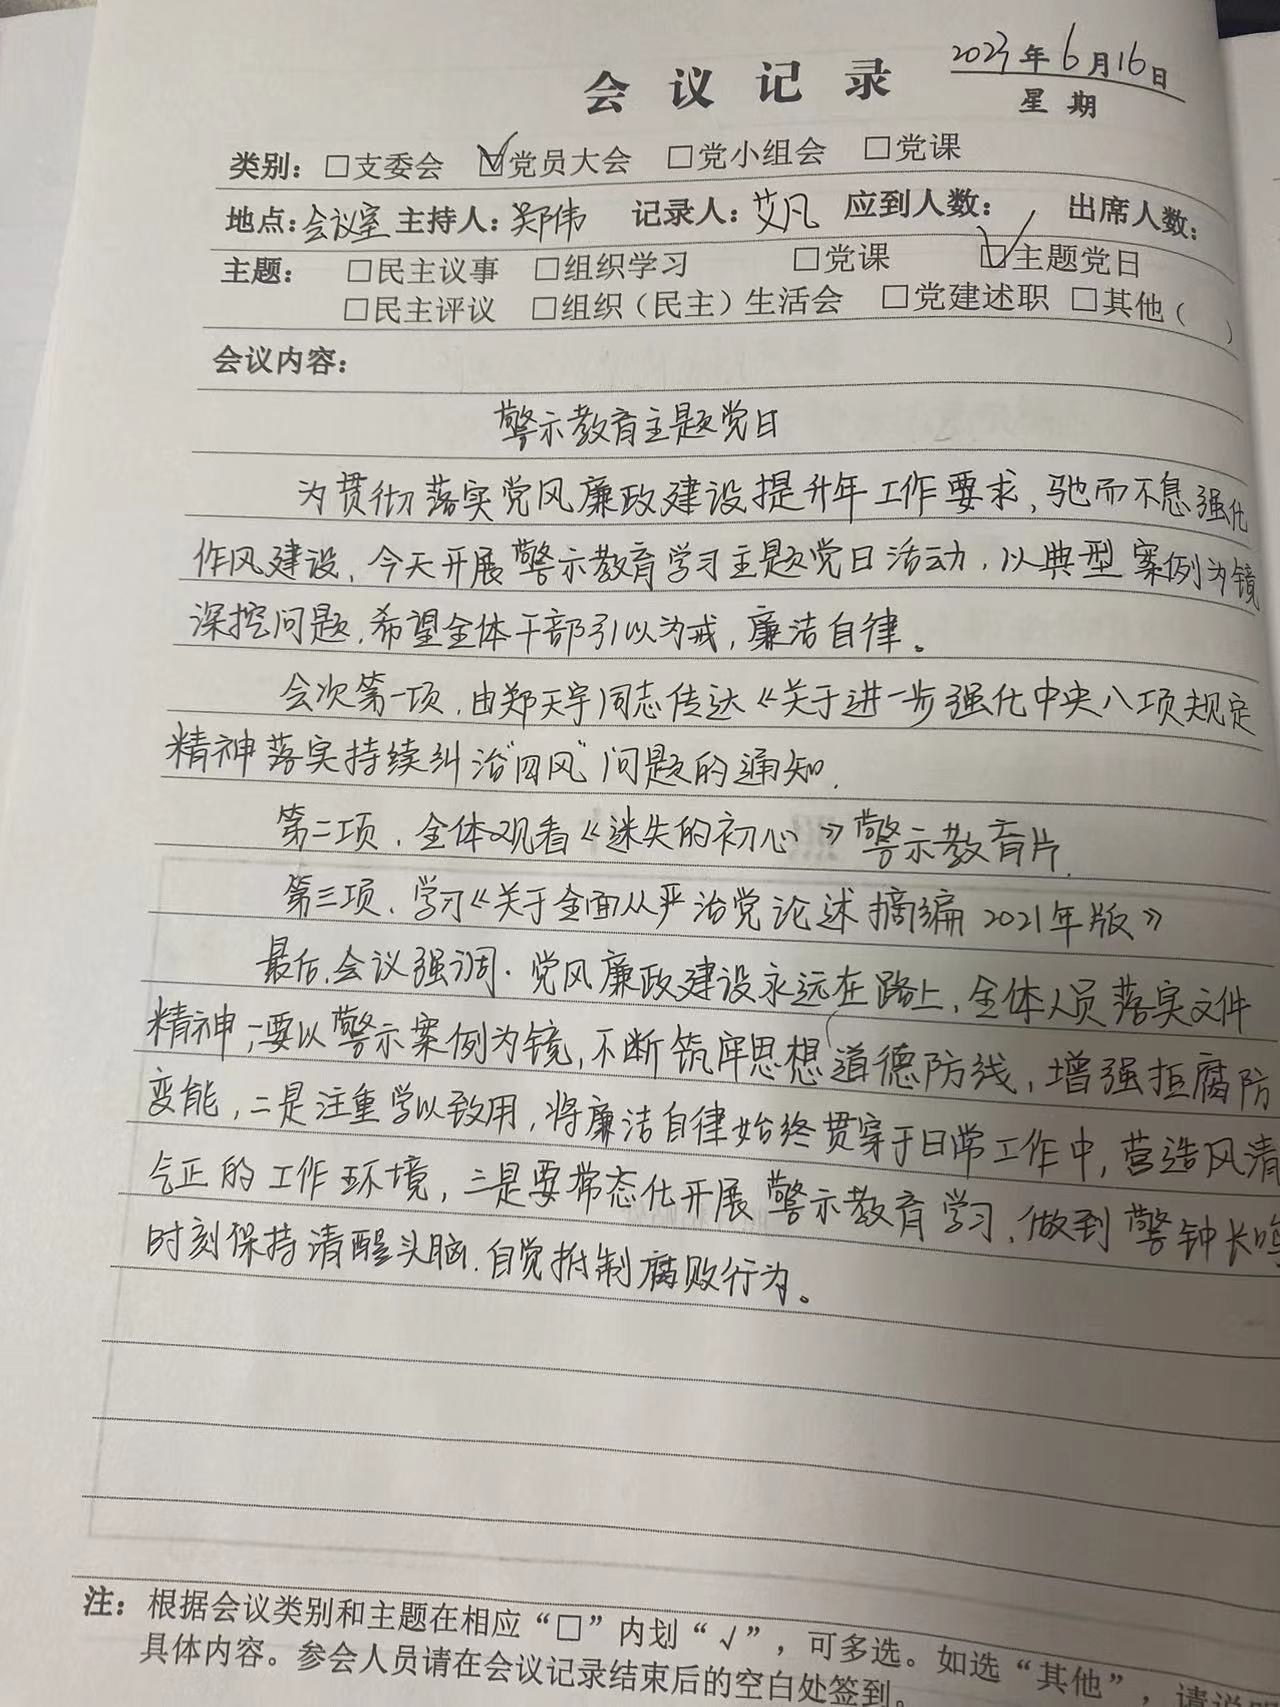 2023年6月16日
会议记录
星期
类别：□支委会 ☑党员大会 □党小组会 □党课
地点：会议室 主持人：郑伟 记录人：艾凡 应到人数： 出席人数：
主题： □民主议事 □组织学习 □党课 ☑主题党日
□民主评议 □组织（民主）生活会 □党建述职 □其他（ ）
会议内容：
警示教育主题党日
为贯彻落实党风廉政建设提升年工作要求，驰而不息强化
作风建设，今天开展警示教育学习主题党日活动，以典型案例为镜
深挖问题，希望全体干部引以为戒，廉洁自律。
会次第一项，由郑天宇同志传达《关于进一步强化中央八项规定
精神落实持续纠治“四风”问题的通知.
第二项，全体观看《迷失的初心》警示教育片.
第三项，学习《关于全面从严治党论述摘编 2021年版》
最后，会议强调.党风廉政建设永远在路上，全体人员落实文件
精神，要以警示案例为镜，不断筑牢思想道德防线，增强拒腐防
变能，二是注重学以致用，将廉洁自律始终贯穿于日常工作中，营造风清
气正的工作环境，三是要常态化开展警示教育学习，做到警钟长鸣
时刻保持清醒头脑.自觉抵制腐败行为。
注：根据会议类别和主题在相应“□”内划“√”，可多选。如选“其他”，请说明
具体内容。参会人员请在会议记录结束后的空白处签到。